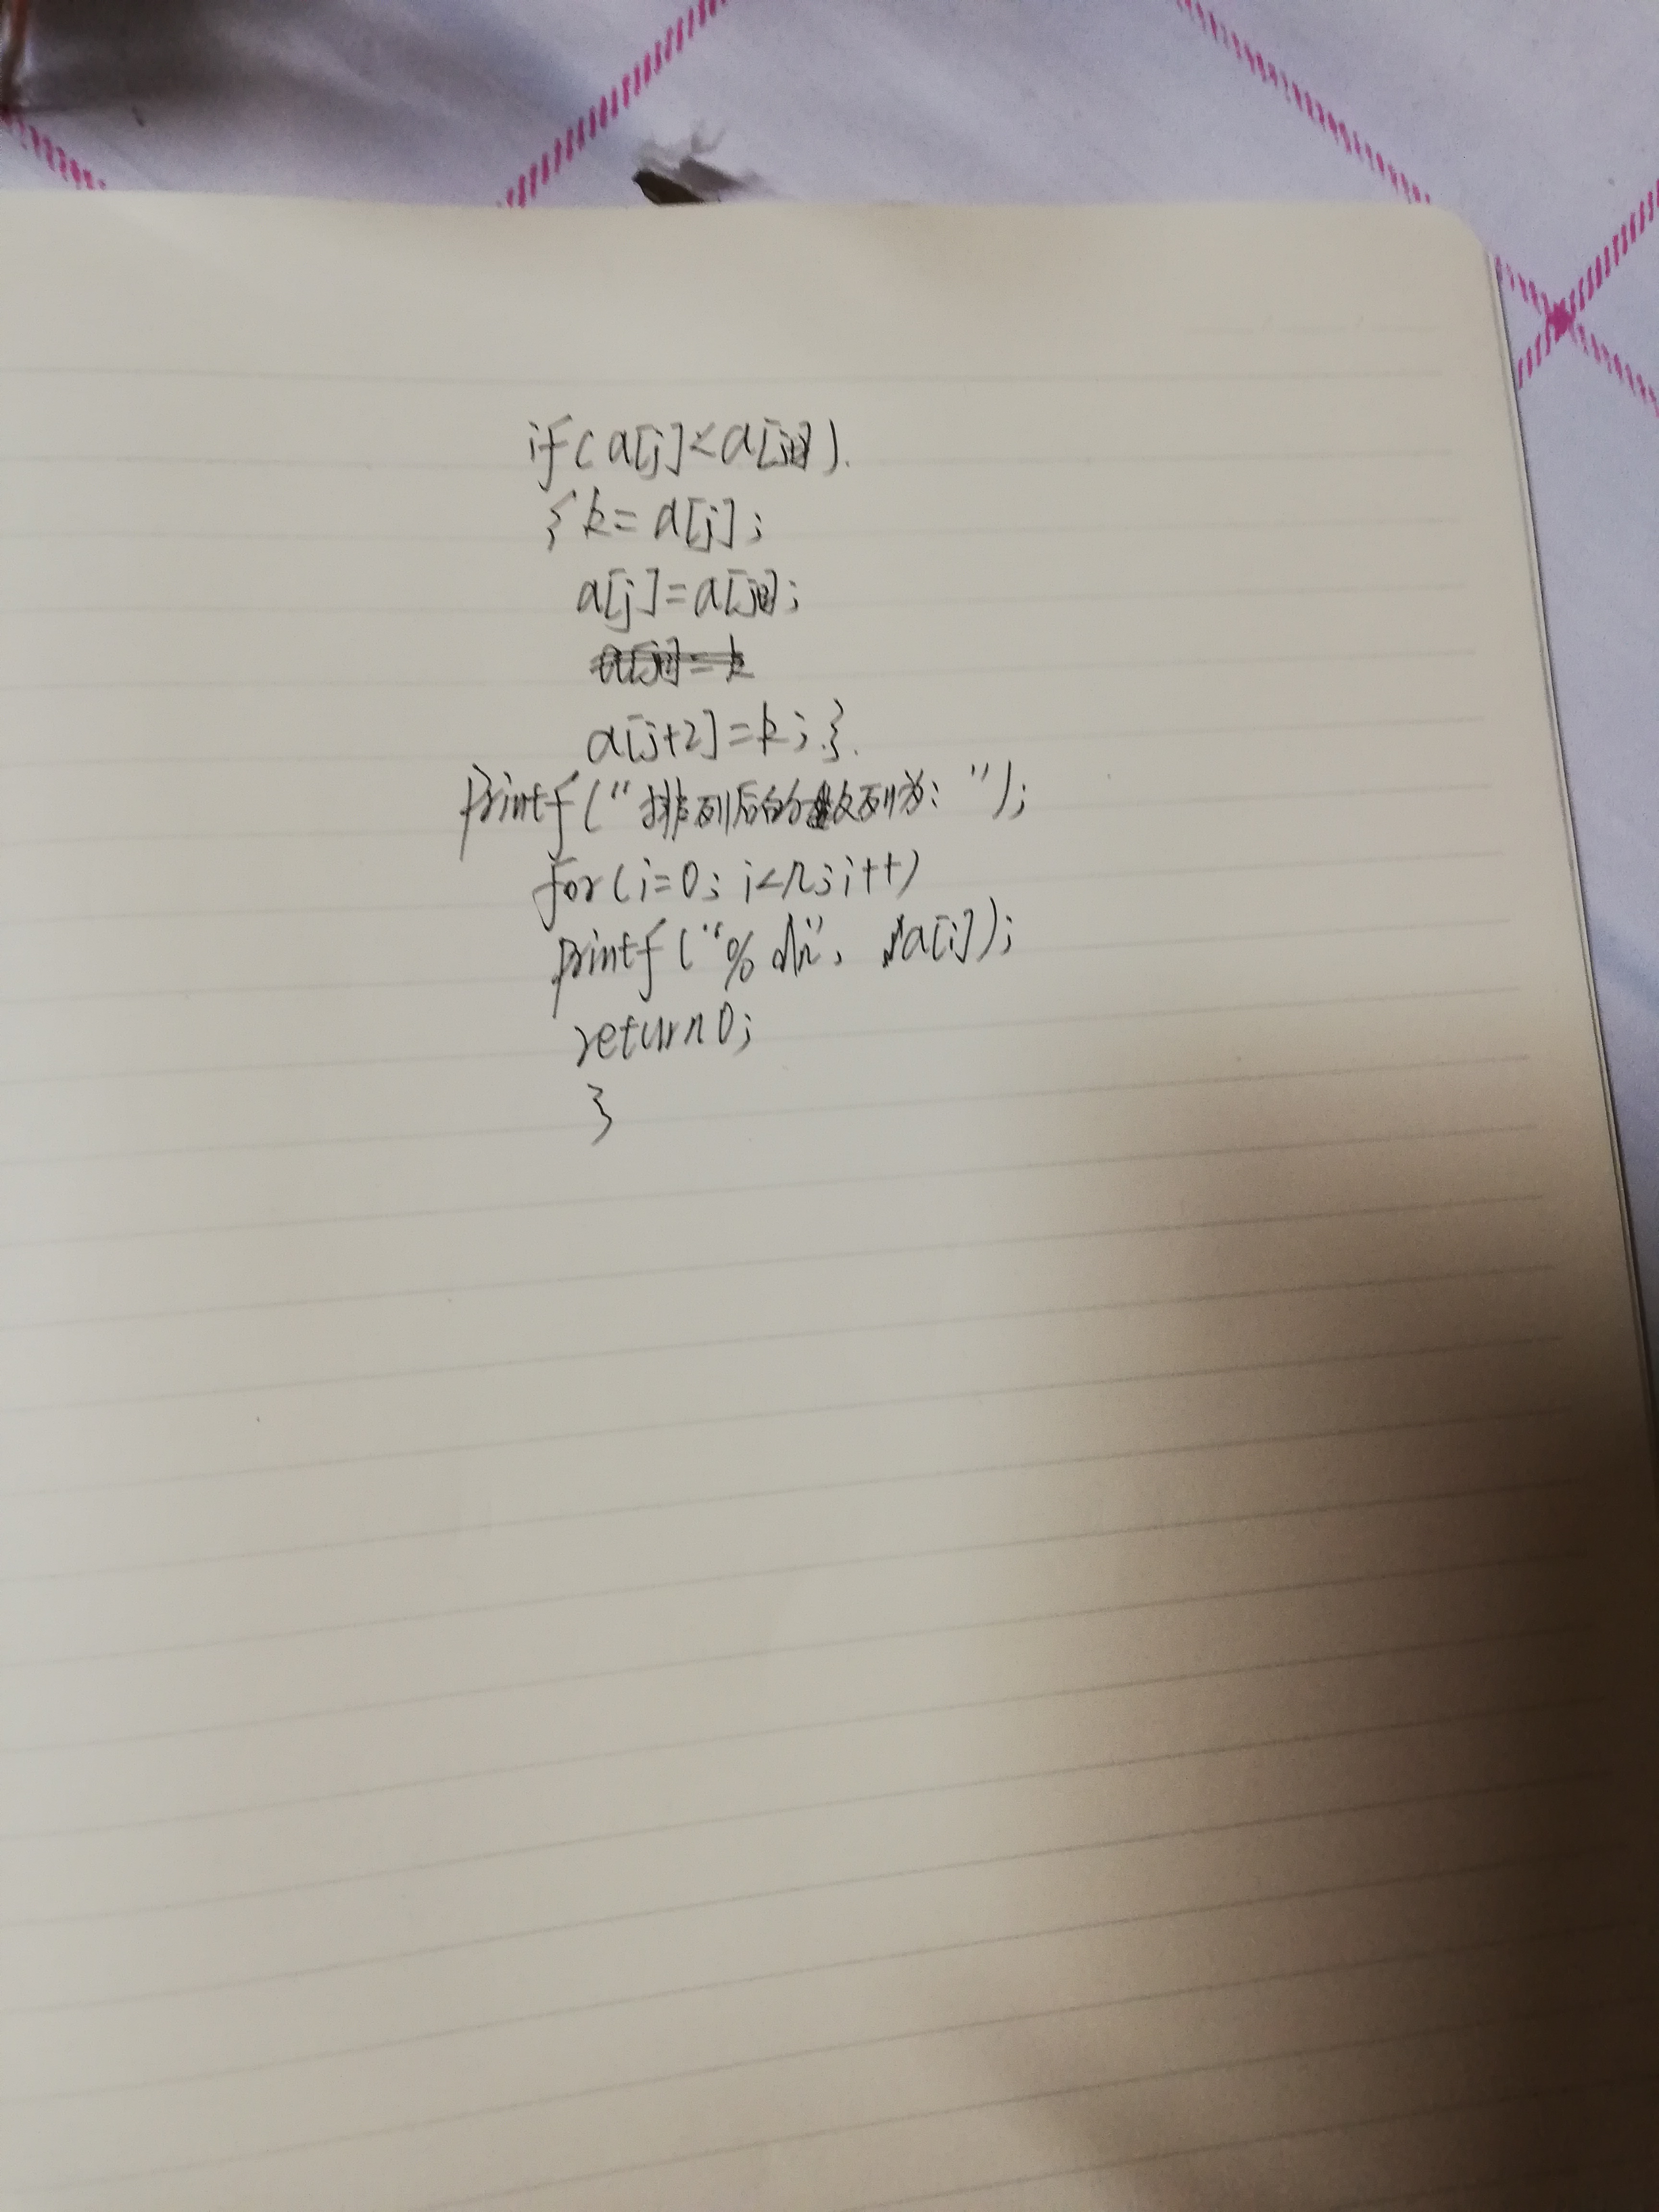 if(a[j]<a[j]).
{k=a[j];
a[j]=a[j];
a[j+2]=k;}.
printf("排列后的数列为: ");
for(i=0; i<n; i++)
printf("%d\n", a[i]);
return 0;
}